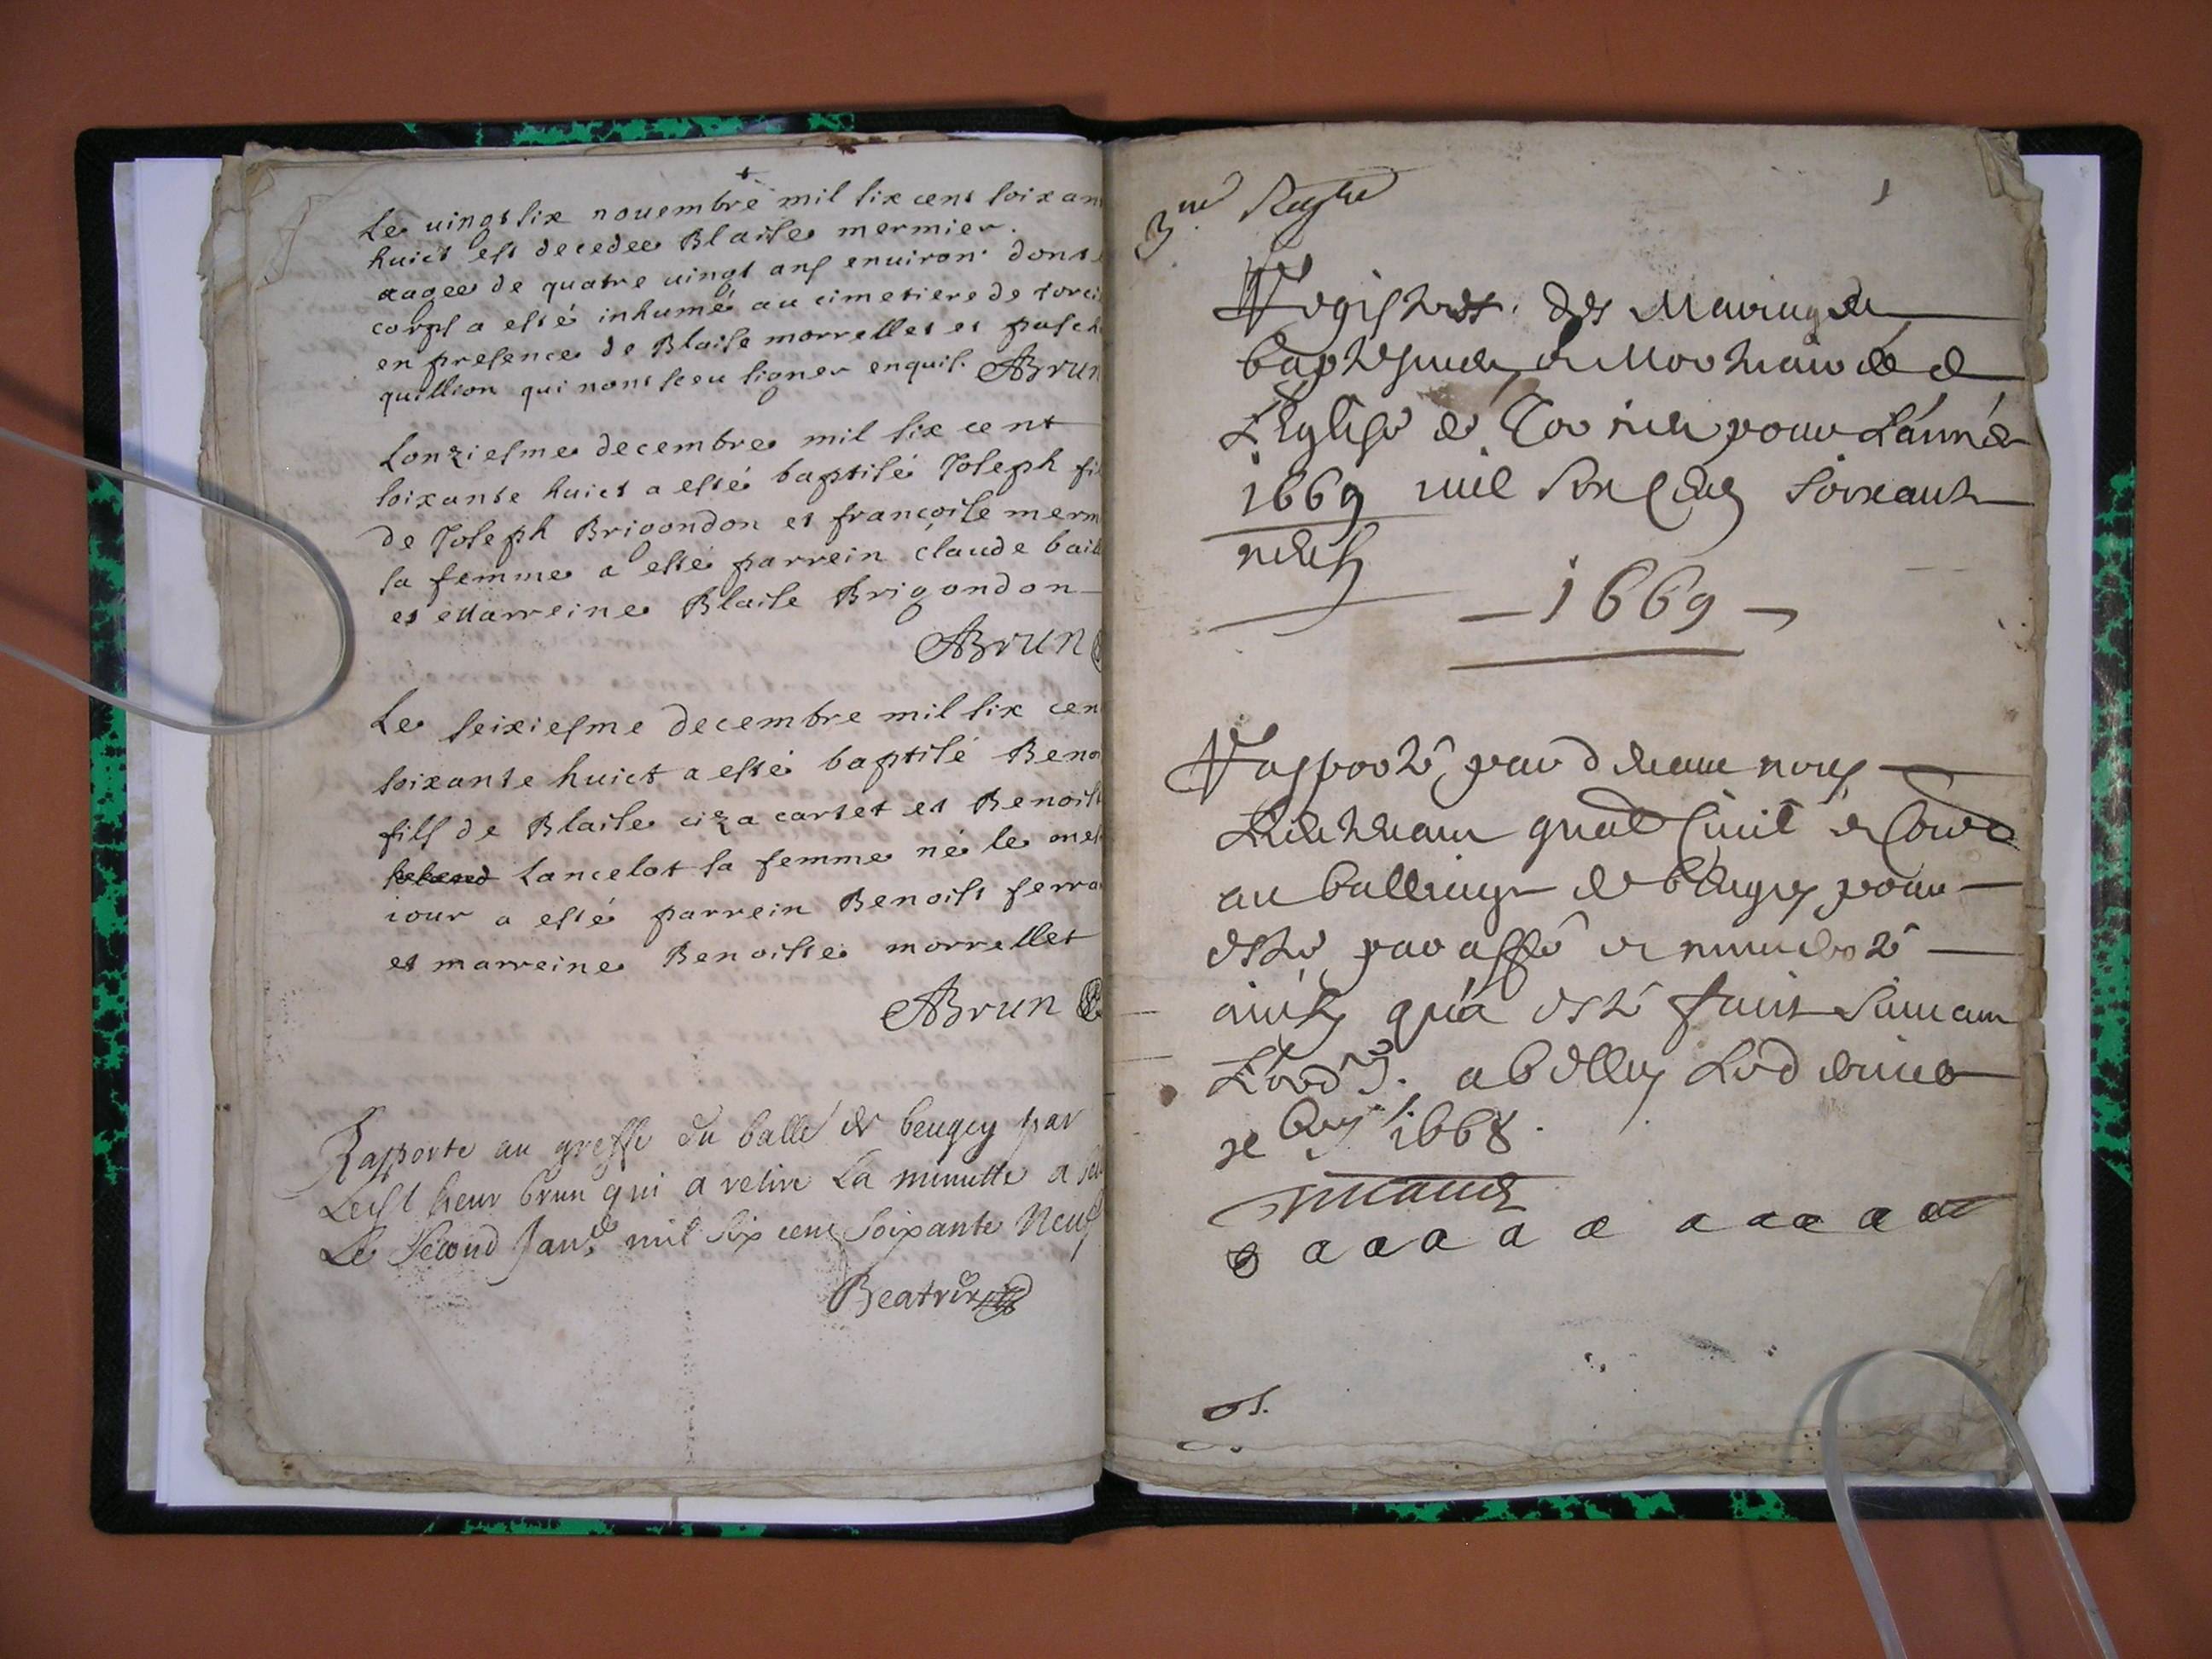 Le uingt six nouembre mil six cent soixan
huict est decedee Blaise mermier.
aagee de quatre uingt ans enuiron dont
corps a esté inhumé au cimetiere de torci
en presence de Blaise morrellet et pasch
quillion qui nont sceu signer enquis. ABrun
Lonziesme decembre mil six cent
soixante huict a esté baptisé Joseph fi
de Joseph Brigondon et françoise merm
sa femme a esté parrein claude bail
et marreine Blaise Brigondon
ABrun
Le seiziesme decembre mil six cen
soixante huict a esté baptisé Beno
fils de Blaise ciza cartet et Benoist
Lancelot sa femme né le mes
iour a esté parrein Benoist ferra
et marreine Benoiste morrellet
ABrun
Rapporte au greffe du balle de beugey par
sieur brun qui a retire La minutte a
Le Second Janr mil six cens Soixante Neuf
Beatrix
3me
Registres des Mariages
baptesmes et Mortuaires de
L'Eglise de pour L'année
1669 mil six cens soixante
neuf
1669
Rapporté par deuant nous
Lieutenant gnal Ciuil et
au balliage de beugey pour
estre paraffé et
ainsy qu'a esté faict suiuant
L'ord. a belley
xbre 1668
a a a a a a a a a a